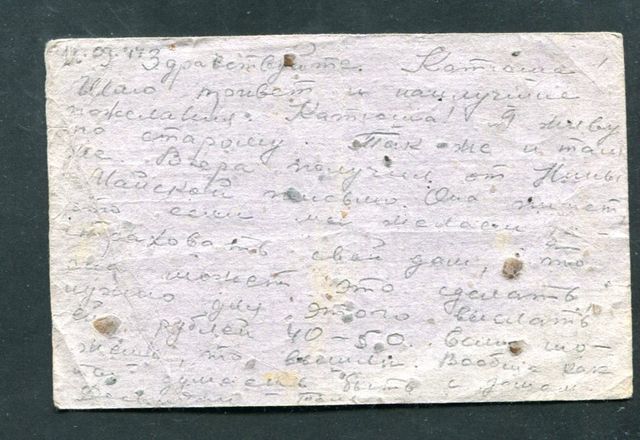 12.09.43
Здравствуйте. Катюша!
Шлю привет и наилучшие
пожелания. Катюша! Я живу
по старому. Так же и там
же. Вчера получил от Нины
Чайской письмо. Она пишет
что если мы желаем
страховать свой дом, то
она может это сделать
нужно для этого выслать
ей рублей 40-50. Если мо-
жешь, то вышли. Вообще как
ты думаешь быть с домом.